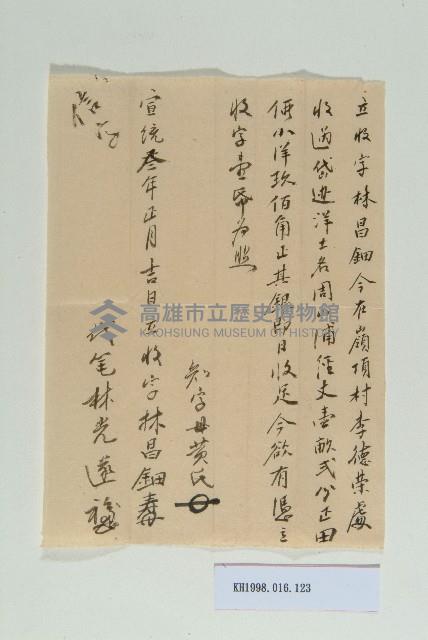 立收字林昌鈿今在嶺頂村李德榮處
收過岱边洋土名周 浦經丈壹畝弍分正田
価小洋玖佰角正其銀即日收足今欲有憑立
收字壹帋为照
知字母黄氏
宣統叁年正月吉日立收字林昌鈿
代笔林光遜
高雄市立歷史博物館
KAOHSIUNG MUSEUM OF HISTORY
KH1998.016.123